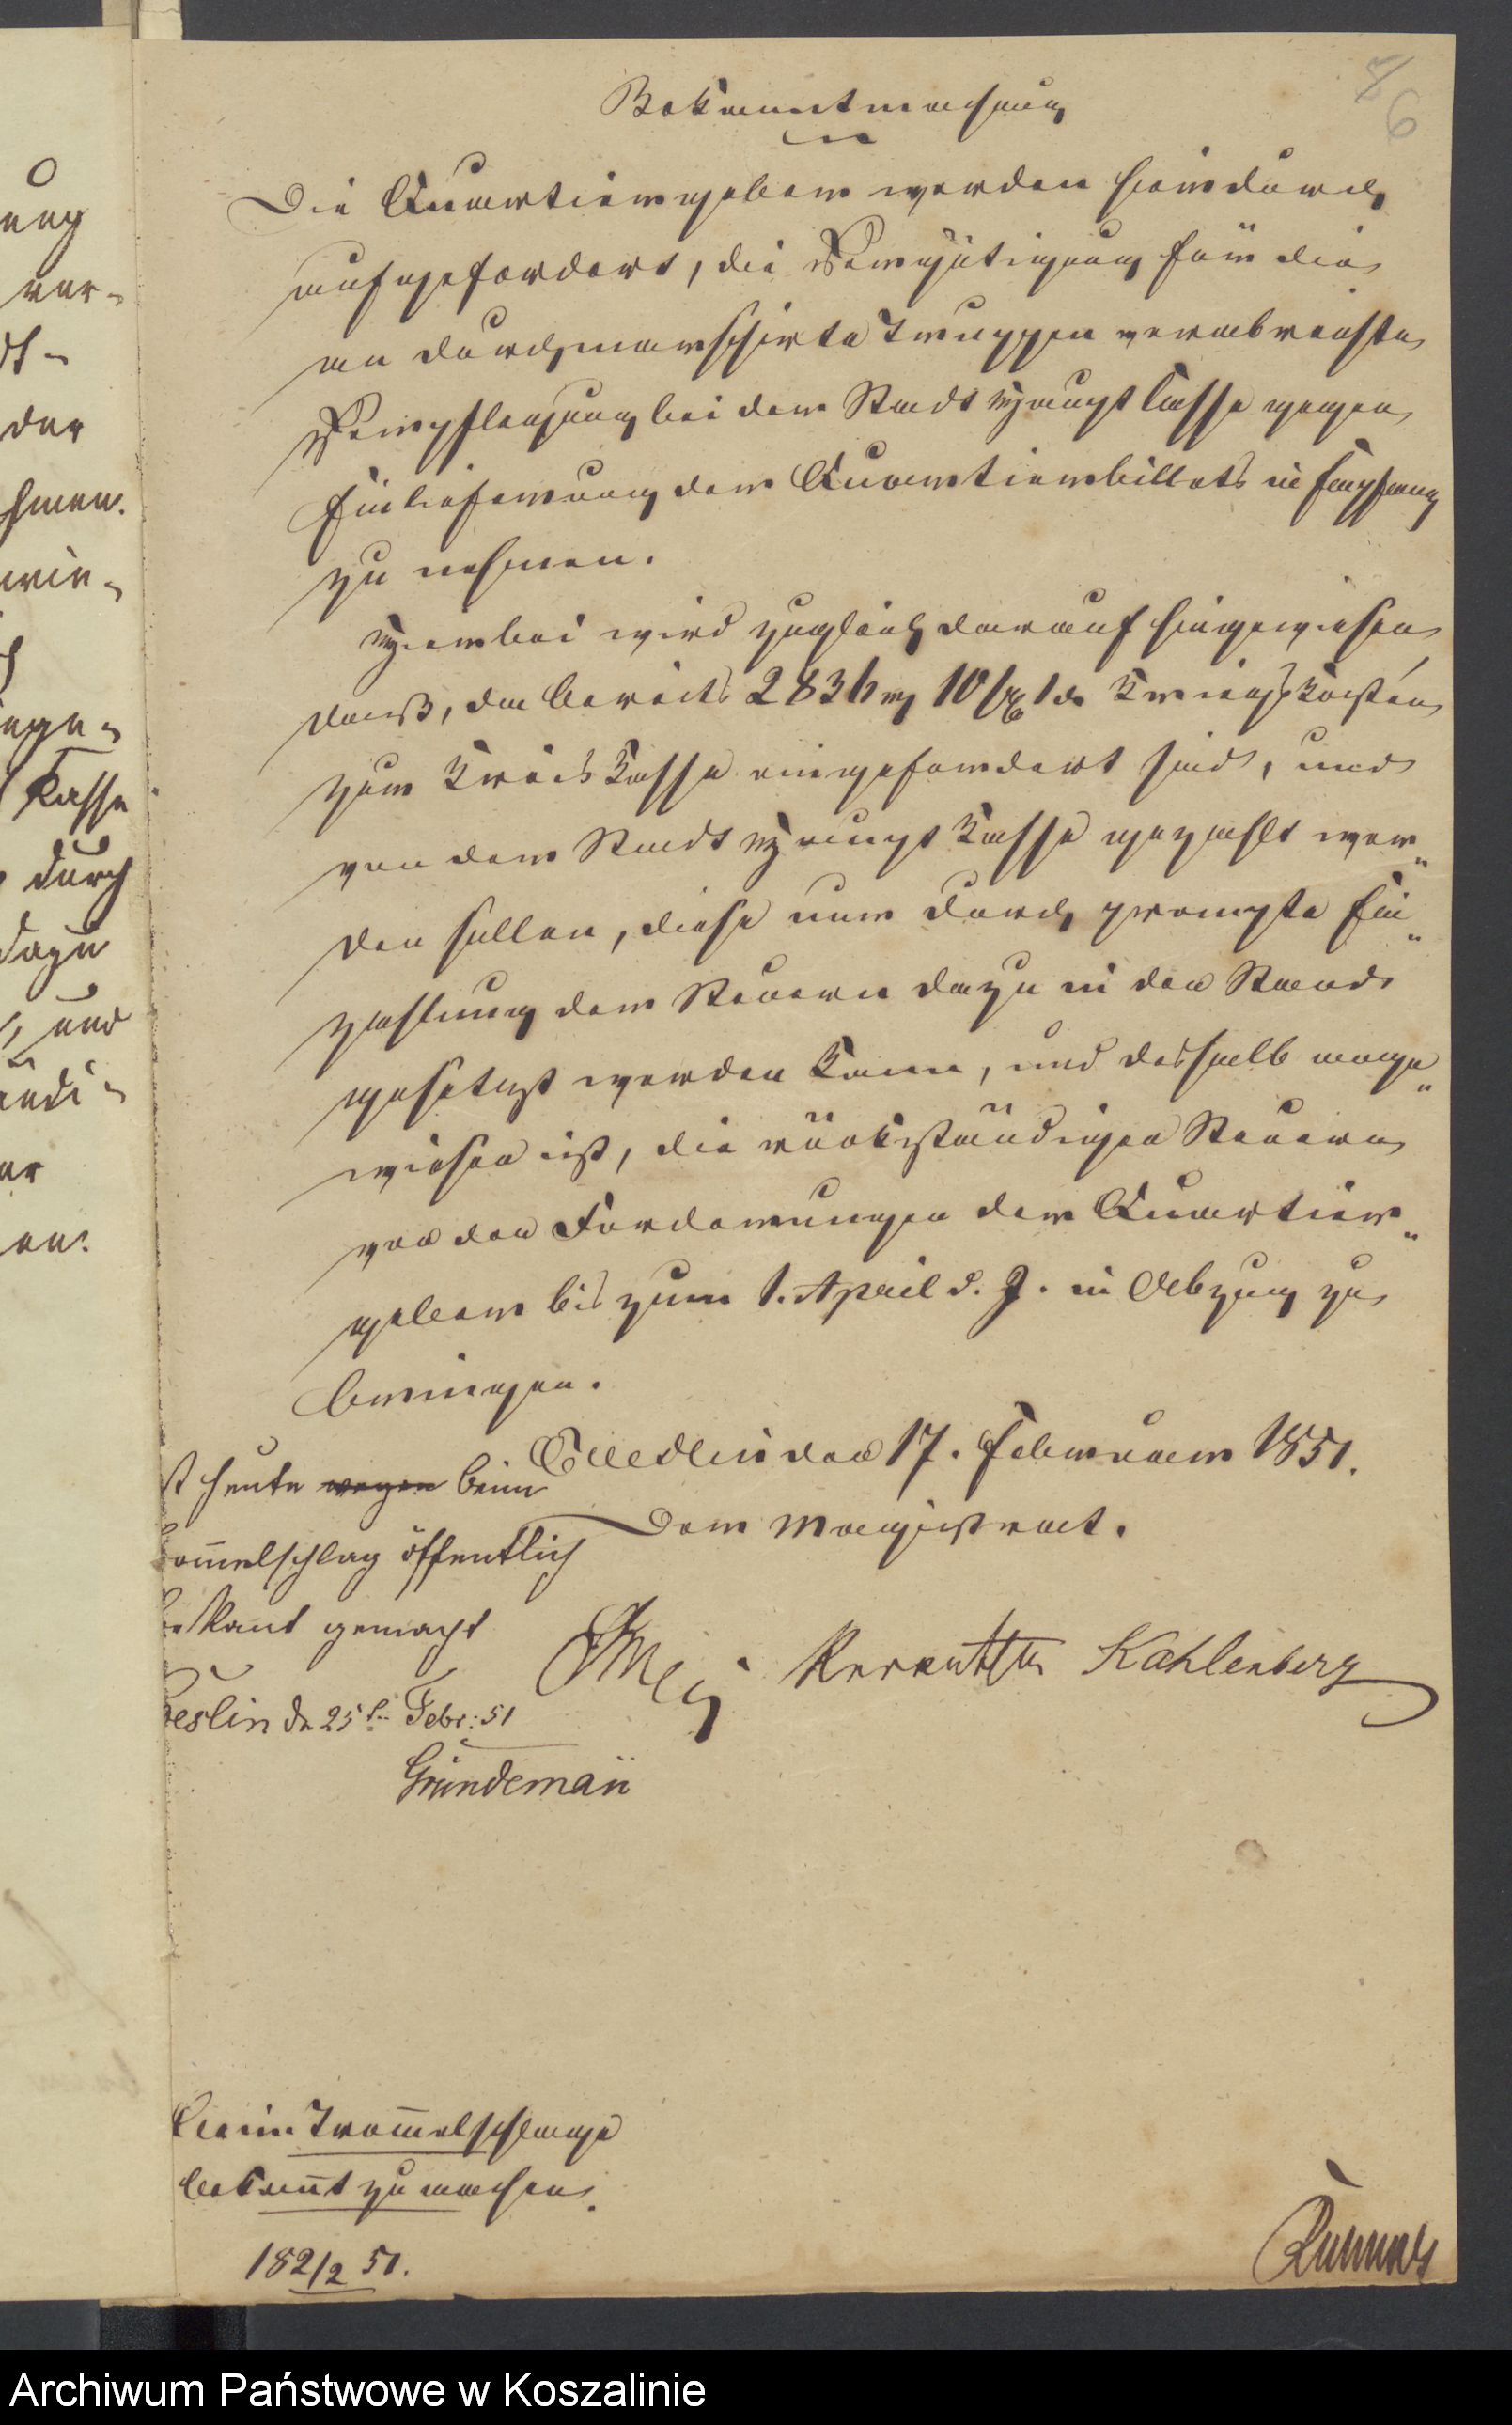 6
Bekanntmachung
Die Quartiergeber werden hierdurch
aufgefordert, die Vergütigung für die
an durchmarschirte Truppen verabreichte
Verpflegung bei der Stadt Haupt Casse gegen
Einlieferung der Quartierbillets in Empfang
zu nehmen.
Hierbei wird zugleich darauf hingewiesen
daß, da bereits 2836 rg 10 Sg 1 d Kriegskosten
zur Kreis Kasse eingefordert sind, und
von der Stadt Haupt Kasse gezahlt wer-
den sollen, diese nur durch prompte Ein-
zahlung der Steuern dazu in den Stand
gesetzt werden kann, und deshalb ange-
wiesen ist, die rückständigen Steuern
von den Forderungen der Quartier-
gebern bis zum 1. April d. J. in Abzug zu
bringen.
Coeslin den 17. Februar 1851.
Der Magistrat.
Kahlenberg
st heute wegen beim
ommelschlag öffentlich
bekant gemacht
oeslin d 25t Febr: 51
Gründemann
beim Trommelschlage
bekannt zu machen.
182/2 51.
ung
ver-
dt-
der
hmen.
wie-
ege-
Kasse
durch
dazu
, und
andi-
er
en.
Archiwum Państwowe w Koszalinie